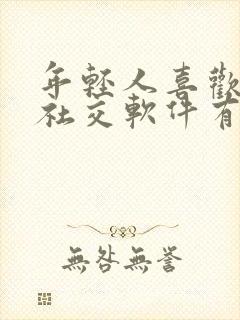 年輕人喜歡
社交軟件有
無咎無譽